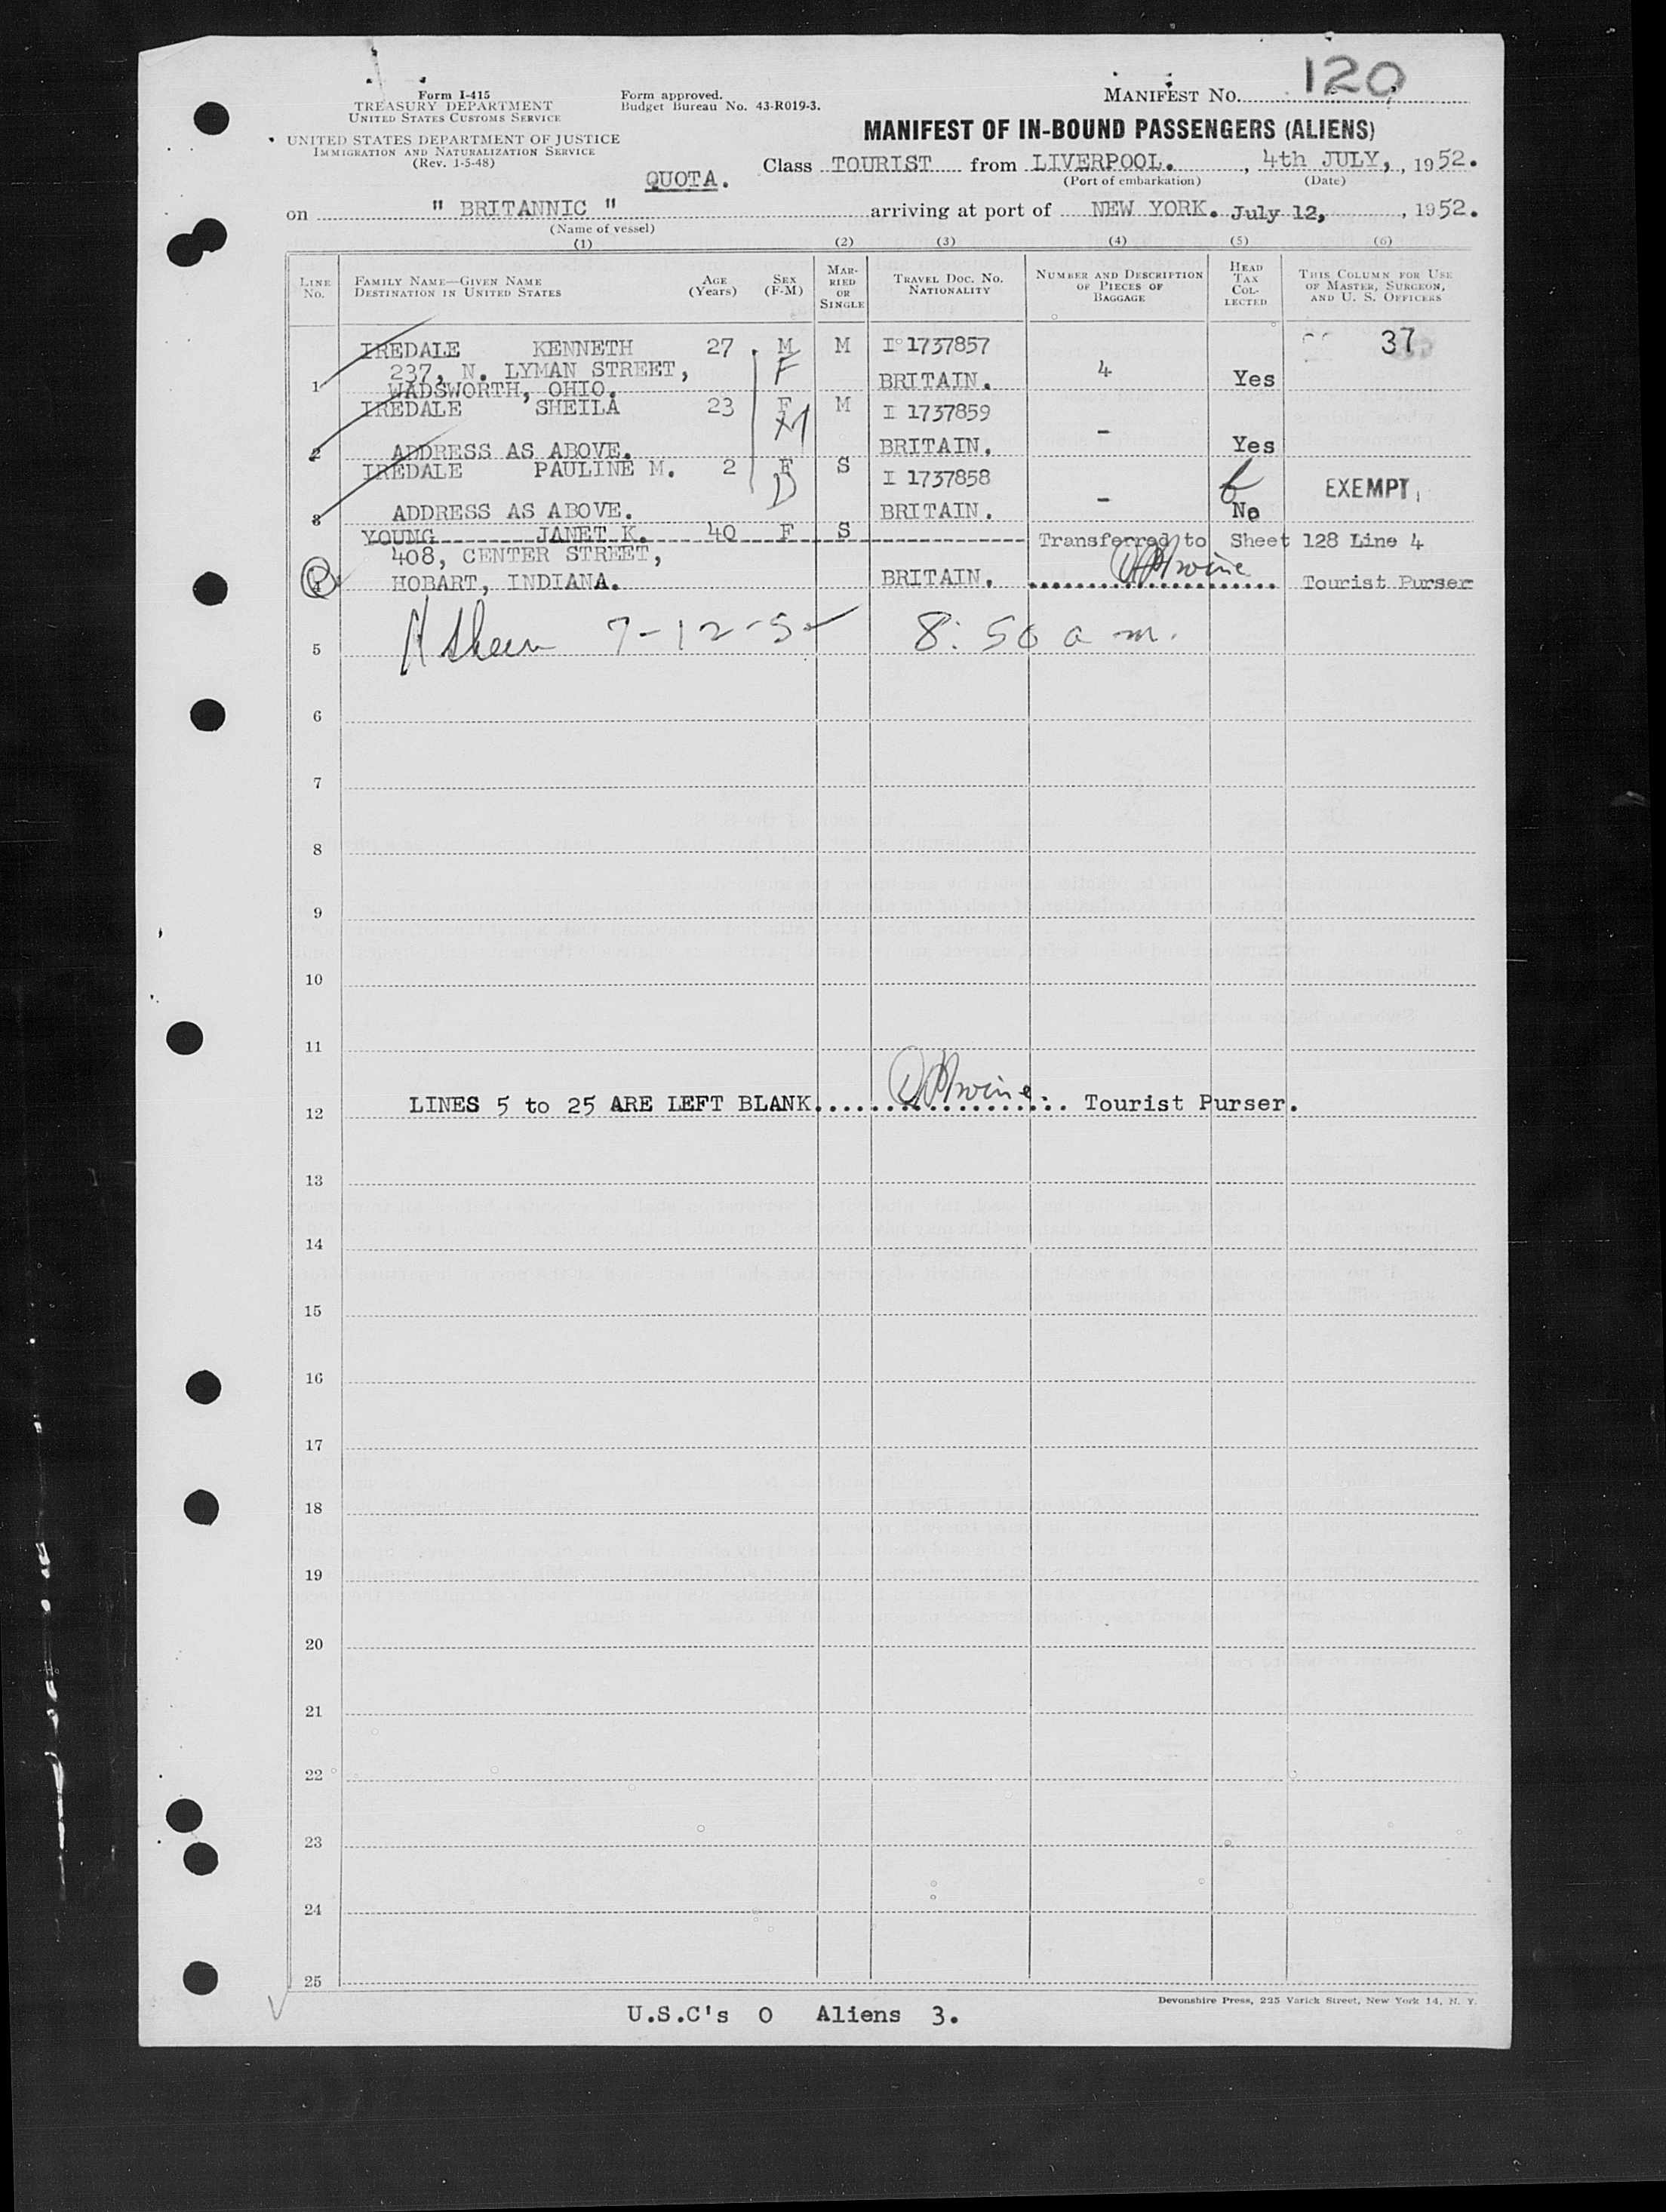 Form I-415
TREASURY DEPARTMENT
UNITED STATES CUSTOMS SERVICE
UNITED STATES DEPARTMENT OF JUSTICE
IMMIGRATION AND NATURALIZATION SERVICE
(Rev. 1-5-48)
Form approved.
Budget Bureau No. 43-R019-3.
MANIFEST NO. 120
MANIFEST OF IN-BOUND PASSENGERS (ALIENS)
QUOTA.
Class TOURIST from LIVERPOOL. , 4th JULY, , 1952.
(Port of embarkation) (Date)
on " BRITANNIC " arriving at port of NEW YORK. July 12, , 1952.
(Name of vessel)
(1) (2) (3) (4) (5) (6)
LINE No.
FAMILY NAME—GIVEN NAME
DESTINATION IN UNITED STATES
AGE (Years)
SEX (F-M)
MARRIED OR SINGLE
TRAVEL DOC. NO.
NATIONALITY
NUMBER AND DESCRIPTION OF PIECES OF BAGGAGE
HEAD TAX COLLECTED
THIS COLUMN FOR USE OF MASTER, SURGEON, AND U. S. OFFICERS
IREDALE KENNETH 27 M M I 1737857 37
237, N. LYMAN STREET, F 4
1 WADSWORTH, OHIO. BRITAIN. Yes
IREDALE SHEILA 23 F M I 1737859
M -
2 ADDRESS AS ABOVE. BRITAIN. Yes
IREDALE PAULINE M. 2 F S I 1737858 EXEMPT
D -
3 ADDRESS AS ABOVE. BRITAIN. No
YOUNG JANET K. 40 F S Transferred to Sheet 128 Line 4
408, CENTER STREET,
4 HOBART, INDIANA. BRITAIN. Tourist Purser
5 7-12-52 8:50 a m.
6
7
8
9
10
11
12 LINES 5 to 25 ARE LEFT BLANK Tourist Purser.
13
14
15
16
17
18
19
20
21
22
23
24
25
Devonshire Press, 225 Varick Street, New York 14, N. Y.
U.S.C's 0 Aliens 3.